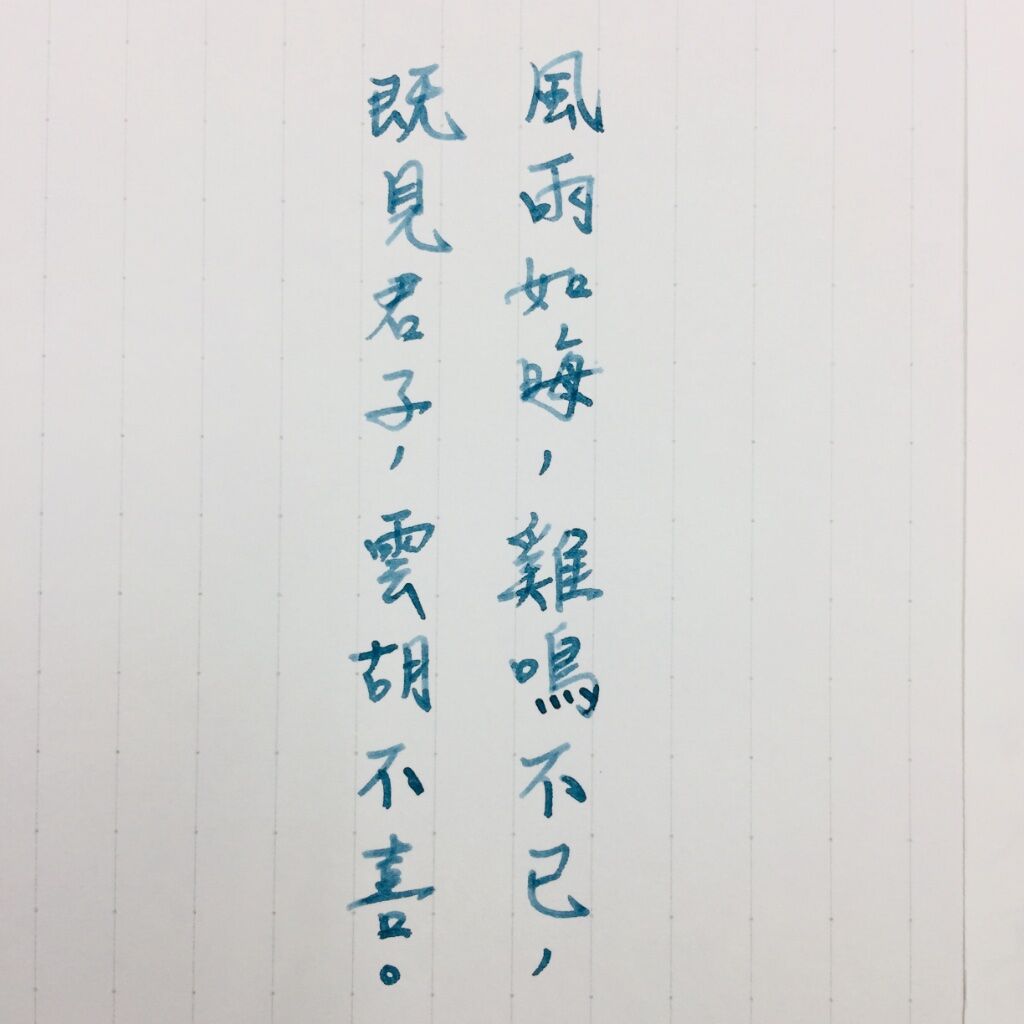 風雨如晦，雞鳴不已，
既見君子，雲胡不喜。